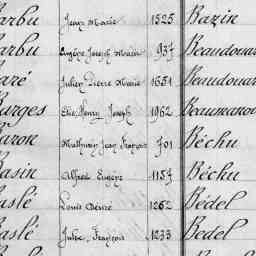 arbu Jean Marie 1525 Bazin
arbu Eugène Joseph Marie 937 Beaudouar
aré Julien Pierre Marie 1651 Beaudouar
arges Elie Henry Joseph 1062 Beaumanoi
aron Mathurin Jean François 701 Béchu
asin Alfred Eugène 1157 Béchu
aslé Louis Désiré 1262 Bédel
aslé Jules François 1233 Bedel